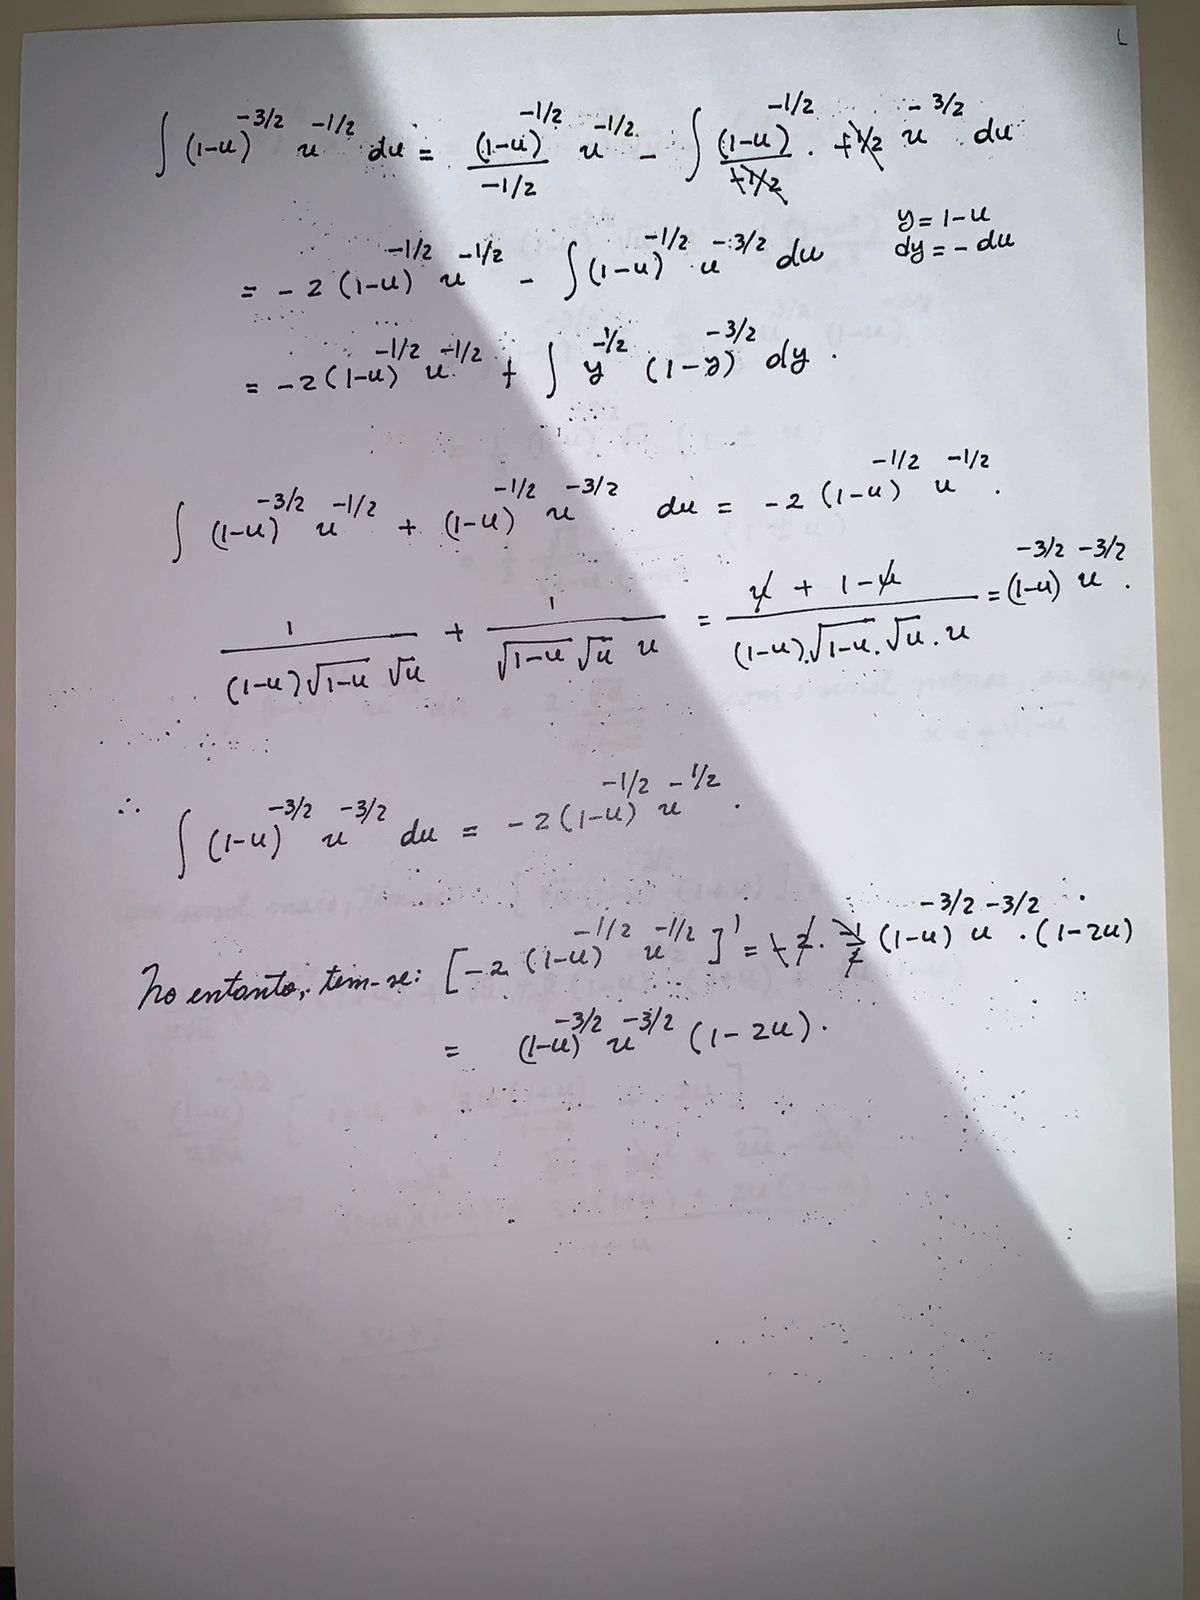 ∫ (1-u)^{-3/2} u^{-1/2} du = \frac{(1-u)^{-1/2}}{-1/2} u^{-1/2} - ∫ \frac{(1-u)^{-1/2}}{+1/2} · +1/2 u^{-3/2} du
y = 1-u
dy = - du
= -2 (1-u)^{-1/2} u^{-1/2} - ∫ (1-u)^{-1/2} u^{-3/2} du
= -2 (1-u)^{-1/2} u^{-1/2} + ∫ y^{-1/2} (1-y)^{-3/2} dy .
∫ (1-u)^{-3/2} u^{-1/2} + (1-u)^{-1/2} u^{-3/2} du = -2 (1-u)^{-1/2} u^{-1/2} .
\frac{1}{(1-u)\sqrt{1-u} \sqrt{u}} + \frac{1}{\sqrt{1-u} \sqrt{u} u} = \frac{u + 1-u}{(1-u).\sqrt{1-u}.\sqrt{u}.u} = (1-u)^{-3/2} u^{-3/2} .
∴ ∫ (1-u)^{-3/2} u^{-3/2} du = -2 (1-u)^{-1/2} u^{-1/2} .
No entanto, tem-se: [-2 (1-u)^{-1/2} u^{-1/2}]' = -2 · \frac{-1}{2} (1-u)^{-3/2} u^{-3/2} · (1-2u)
= (1-u)^{-3/2} u^{-3/2} (1-2u) .